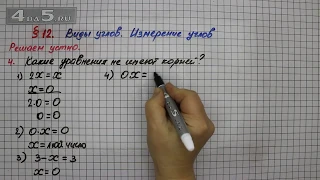 4a5.ru
§ 12. Виды углов. Измерение углов
Решаем устно.
4. Какие уравнения не имеют корней?
1) 2x = x
x = 0
2·0 = 0
0 = 0
2) 0·x = 0
x = любое число
3) 3 - x = 3
x = 0
4) 0x =